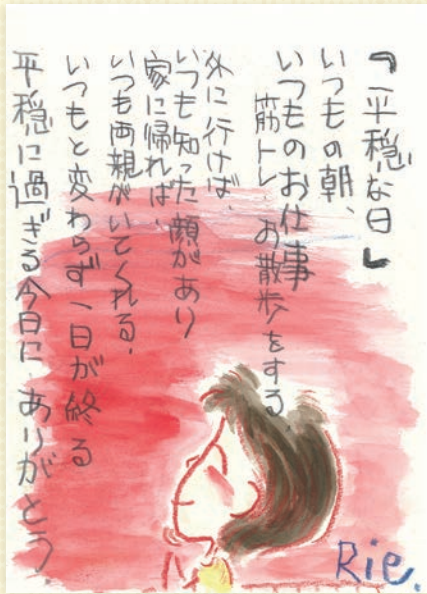 『平穏な日』
いつもの朝、
いつものお仕事
筋トレ、お散歩をする。
外に行けば、
いつも知った顔があり
家に帰れば、
いつも両親がいてくれる。
いつもと変わらず一日が終る
平穏に過ぎる今日にありがとう。
Rie.